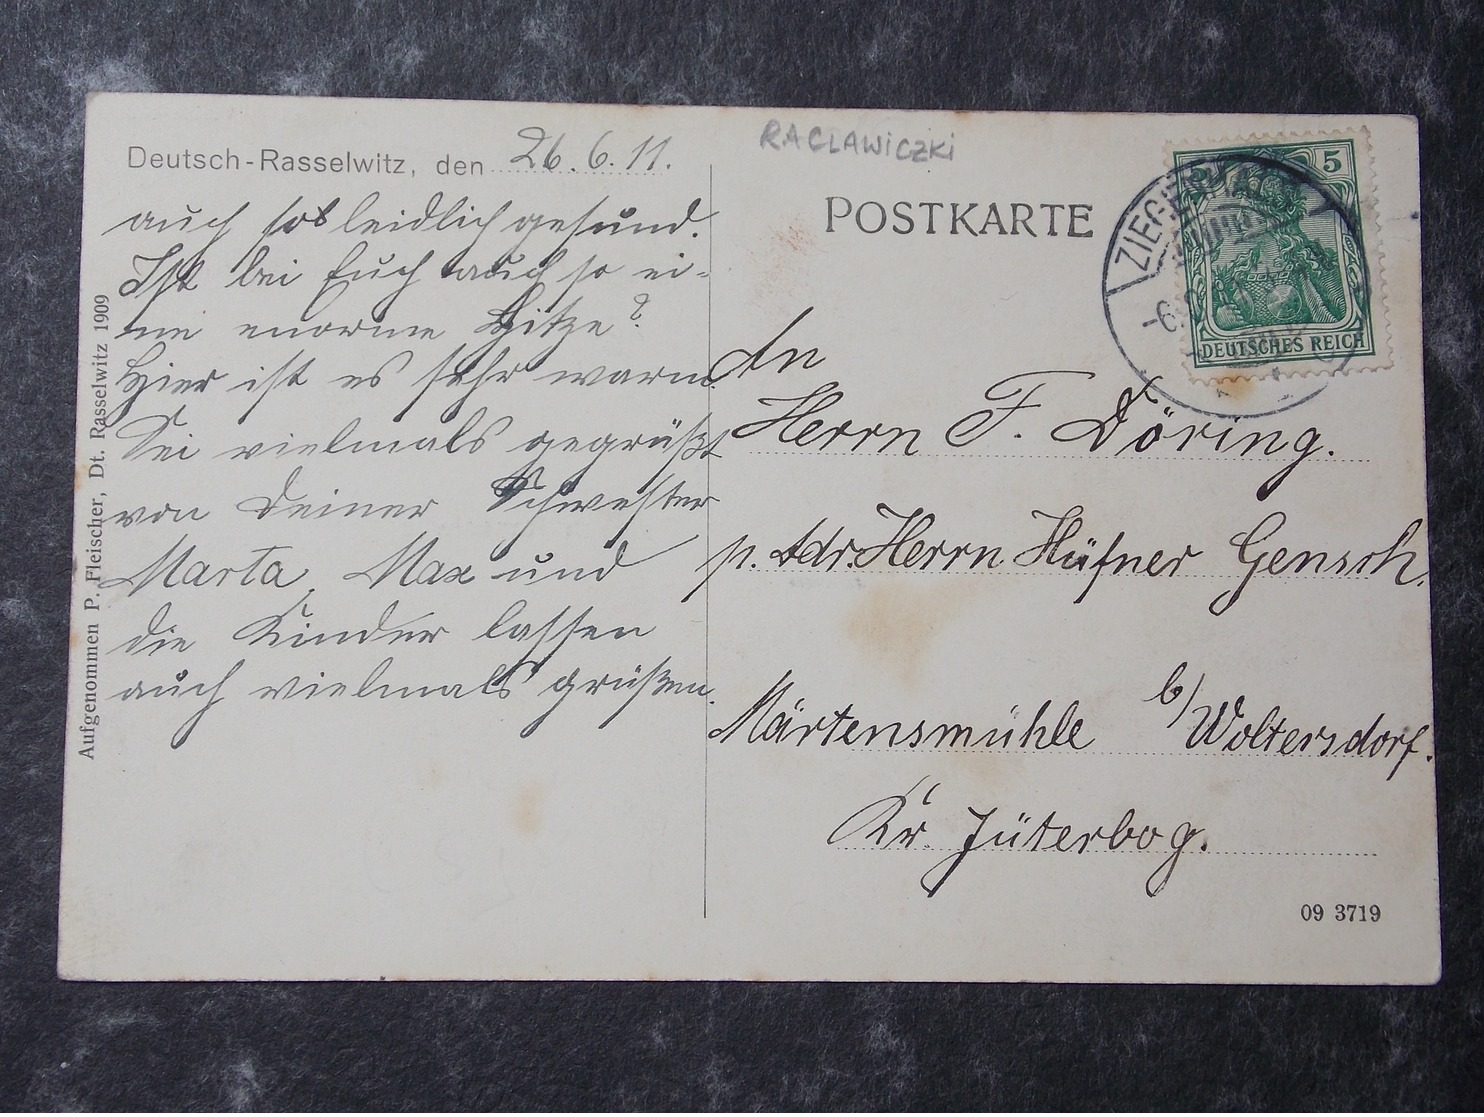 Deutsch-Rasselwitz, den 26.6.11.
auch so leidlich gesund.
Ist bei Euch auch so ei-
ne enorme Hitze?
Hier ist es sehr warm.
Sei vielmals gegrüßt
von Deiner Schwester
Marta, Max und
die Kinder lassen
auch vielmals grüßen.
Aufgenommen P. Fleischer, Dt. Rasselwitz 1909
RACLAWICZKI
POSTKARTE
5
DEUTSCHES REICH
ZIEGENHALS
An
Herrn F. Döring.
p. Adr. Herrn Hüfner Gensch.
Märtensmühle b/ Woltersdorf.
Kr. Jüterbog.
09 3719